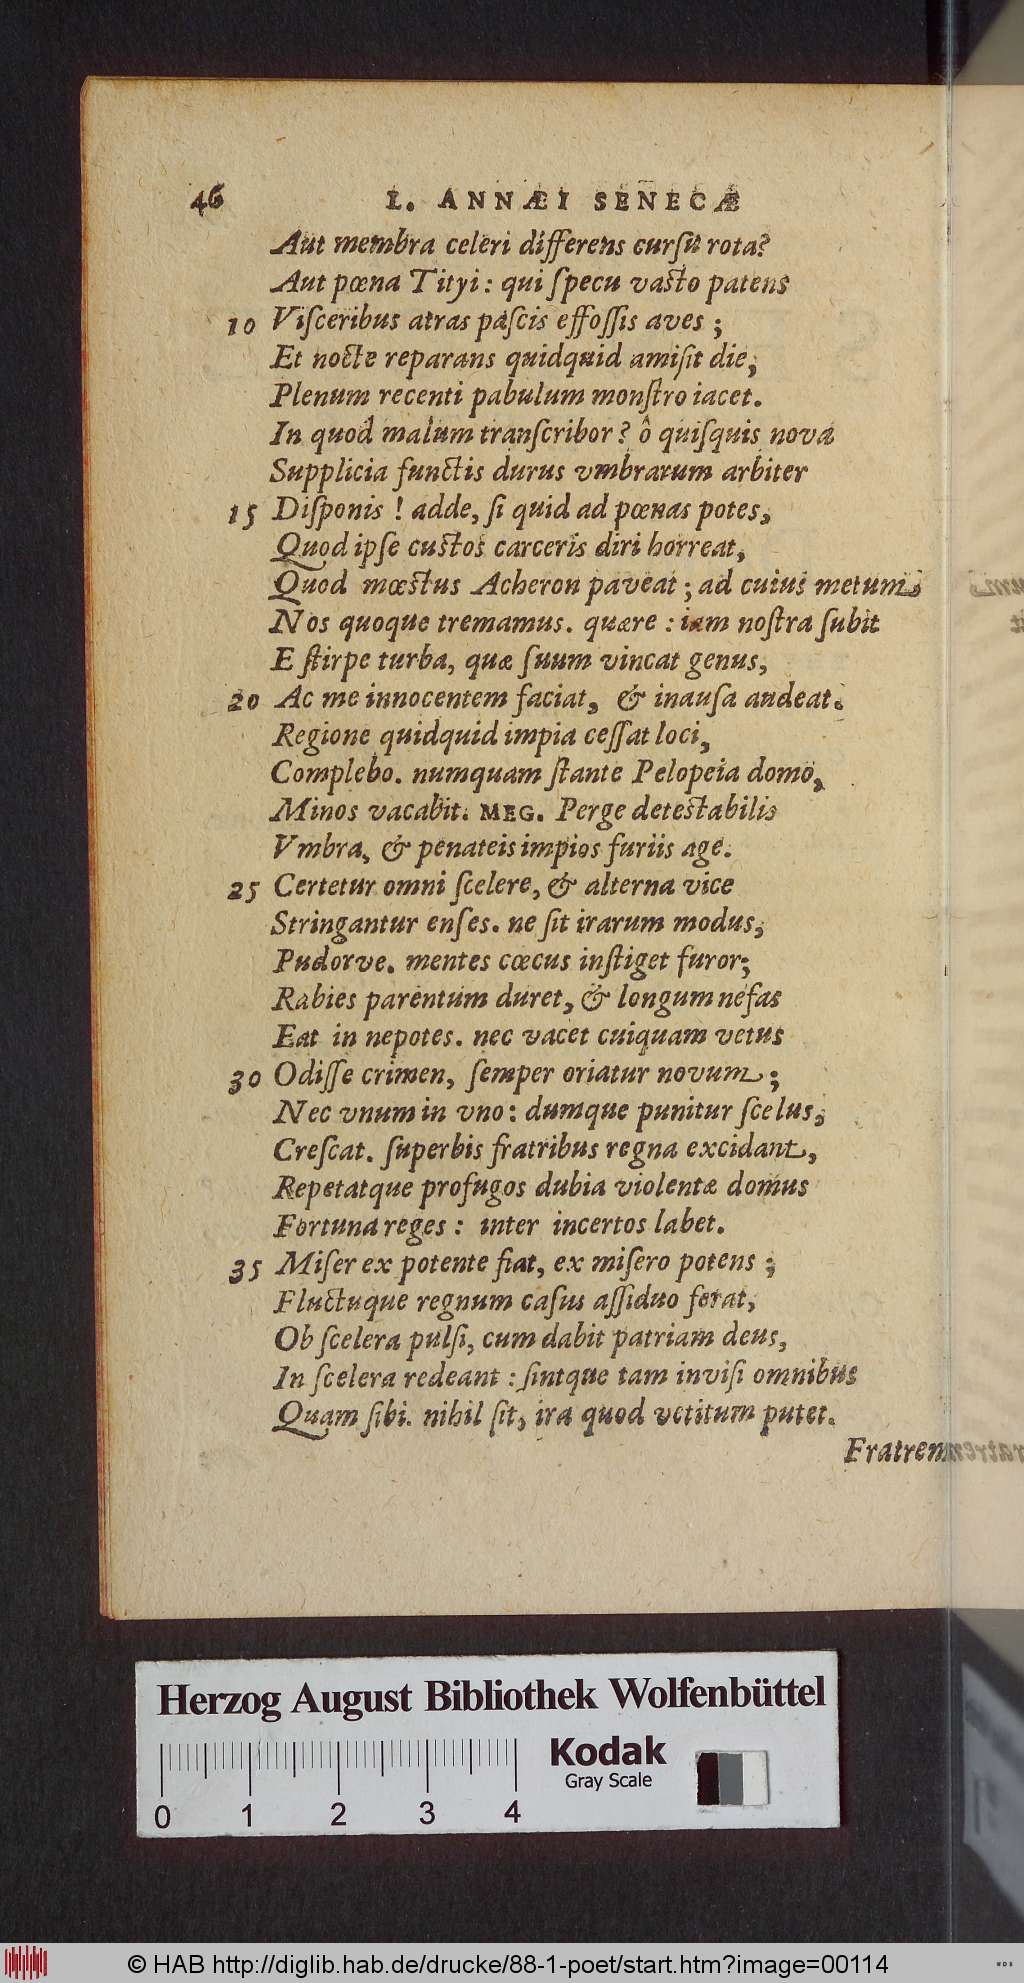 46 L. ANNÆI SENECÆ
Aut membra celeri differens cursû rota?
Aut pœna Tityi: qui specu vasto patens
10 Visceribus atras pascis effossis aves;
Et nocte reparans quidquid amisit die,
Plenum recenti pabulum monstro iacet.
In quod malum transcribor? ô quisquis nova
Supplicia functis durus vmbrarum arbiter
15 Disponis! adde, si quid ad pœnas potes,
Quod ipse custos carceris diri horreat,
Quod mœstus Acheron paveat; ad cuius metum
Nos quoque tremamus. quære: iam nostra subit
E stirpe turba, quæ suum vincat genus,
20 Ac me innocentem faciat, & inausa audeat.
Regione quidquid impia cessat loci,
Complebo. numquam stante Pelopeia domo,
Minos vacabit. MEG. Perge detestabilis
Vmbra, & penateis impios furiis age.
25 Certetur omni scelere, & alterna vice
Stringantur enses. ne sit irarum modus,
Pudorve. mentes cœcus instiget furor;
Rabies parentum duret, & longum nefas
Eat in nepotes. nec vacet cuiquam vetus
30 Odisse crimen, semper oriatur novum;
Nec vnum in vno: dumque punitur scelus,
Crescat. superbis fratribus regna excidant,
Repetatque profugos dubia violentæ domus
Fortuna reges: inter incertos labet.
35 Miser ex potente fiat, ex misero potens;
Fluctuque regnum casus assiduo ferat,
Ob scelera pulsi, cum dabit patriam deus,
In scelera redeant: sintque tam invisi omnibus
Quam sibi. nihil sit, ira quod vetitum putet.
Fratrem
Herzog August Bibliothek Wolfenbüttel
Kodak
Gray Scale
0 1 2 3 4
© HAB http://diglib.hab.de/drucke/88-1-poet/start.htm?image=00114